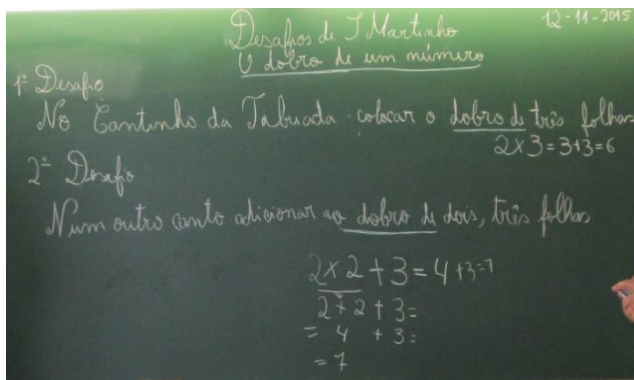 12-11-2015
Desafios de S Martinho
O dobro de um número
1º Desafio
No Cantinho da Tabuada colocar o dobro de três folhas
2x3=3+3=6
2º Desafio
Num outro canto adicionar ao dobro de dois, três folhas
2x2+3=4+3=7
2+2+3=
= 4 + 3=
=7